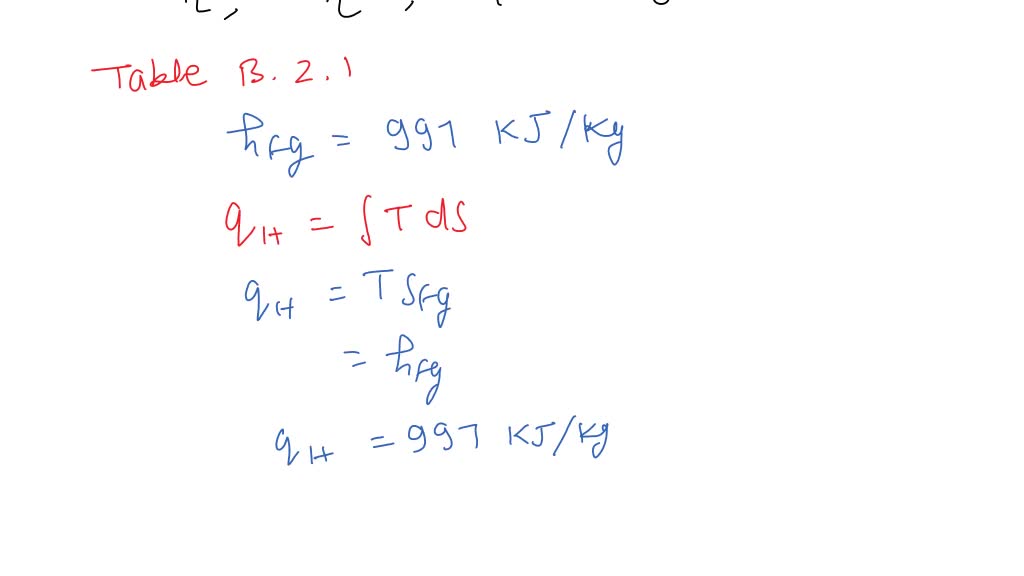 Table B.2.1
hfg = 997 KJ/Kg
qH = ∫T dS
qH = T Sfg
= hfg
qH = 997 KJ/Kg